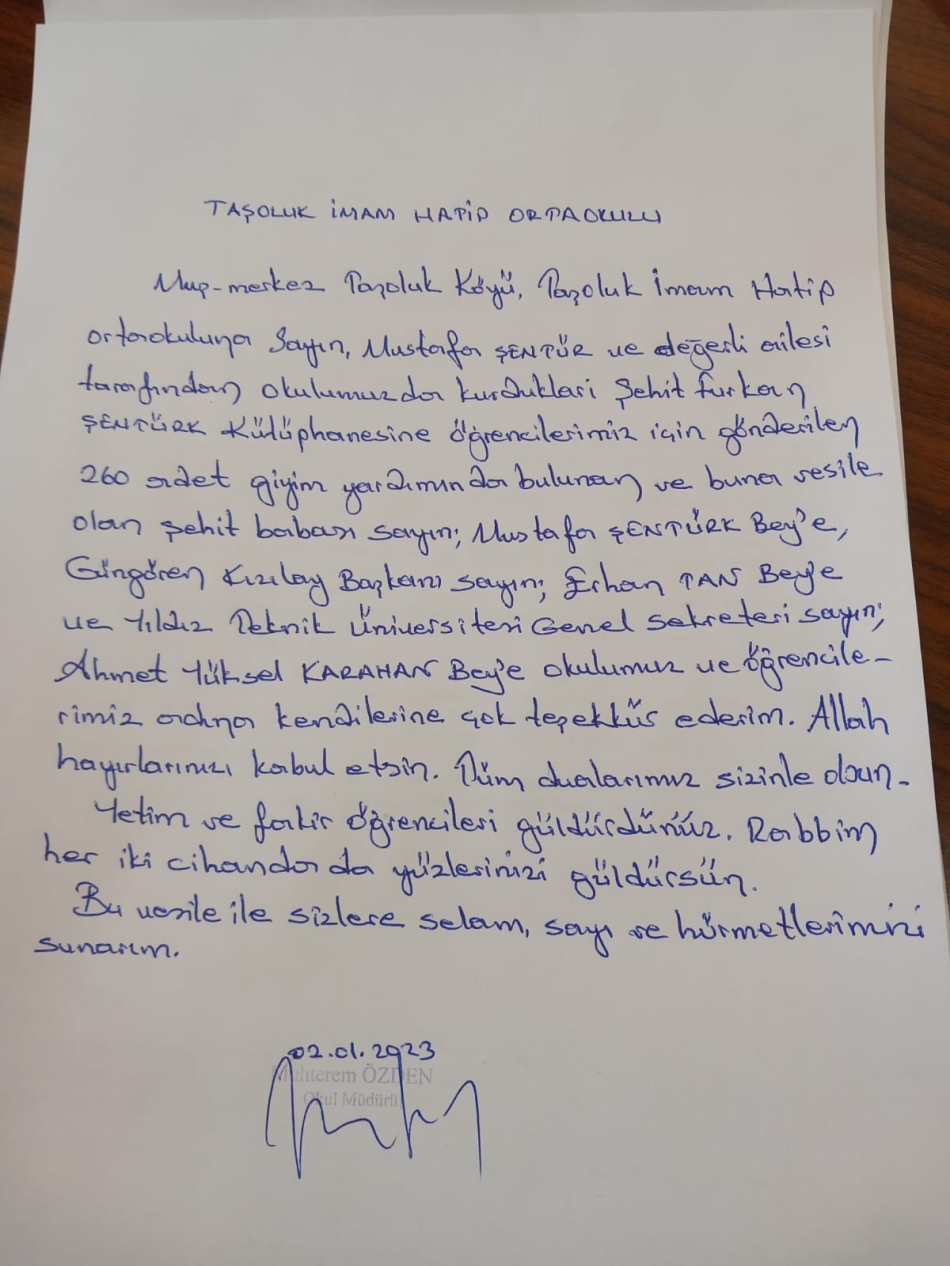 TAŞOLUK İMAM HATİP ORTAOKULU
Muş-merkez Taşoluk Köyü, Taşoluk İmam Hatip
ortaokuluna Sayın, Mustafa ŞENTÜR ve değerli ailesi
tarafından okulumuzda kurdukları Şehit Furkan
ŞENTÜRK Kütüphanesine öğrencilerimiz için gönderilen
260 adet giyim yardımında bulunan ve buna vesile
olan şehit babası sayın; Mustafa ŞENTÜRK Bey'e,
Güngören Kızılay Başkanı sayın; Erhan TAN Bey'e
ve Yıldız Teknik Üniversitesi Genel Sekreteri sayın;
Ahmet Yüksel KARAHAN Bey'e okulumuz ve öğrencile-
rimiz adına kendilerine çok teşekkür ederim. Allah
hayırlarınızı kabul etsin. Tüm dualarımız sizinle olsun.
Yetim ve fakir öğrencileri güldürdünüz. Rabbim
her iki cihanda da yüzlerinizi güldürsün.
Bu vesile ile sizlere selam, sayı ve hürmetlerimizi
sunarım.
02.01.2023
Muhterem ÖZDEN
Okul Müdürü